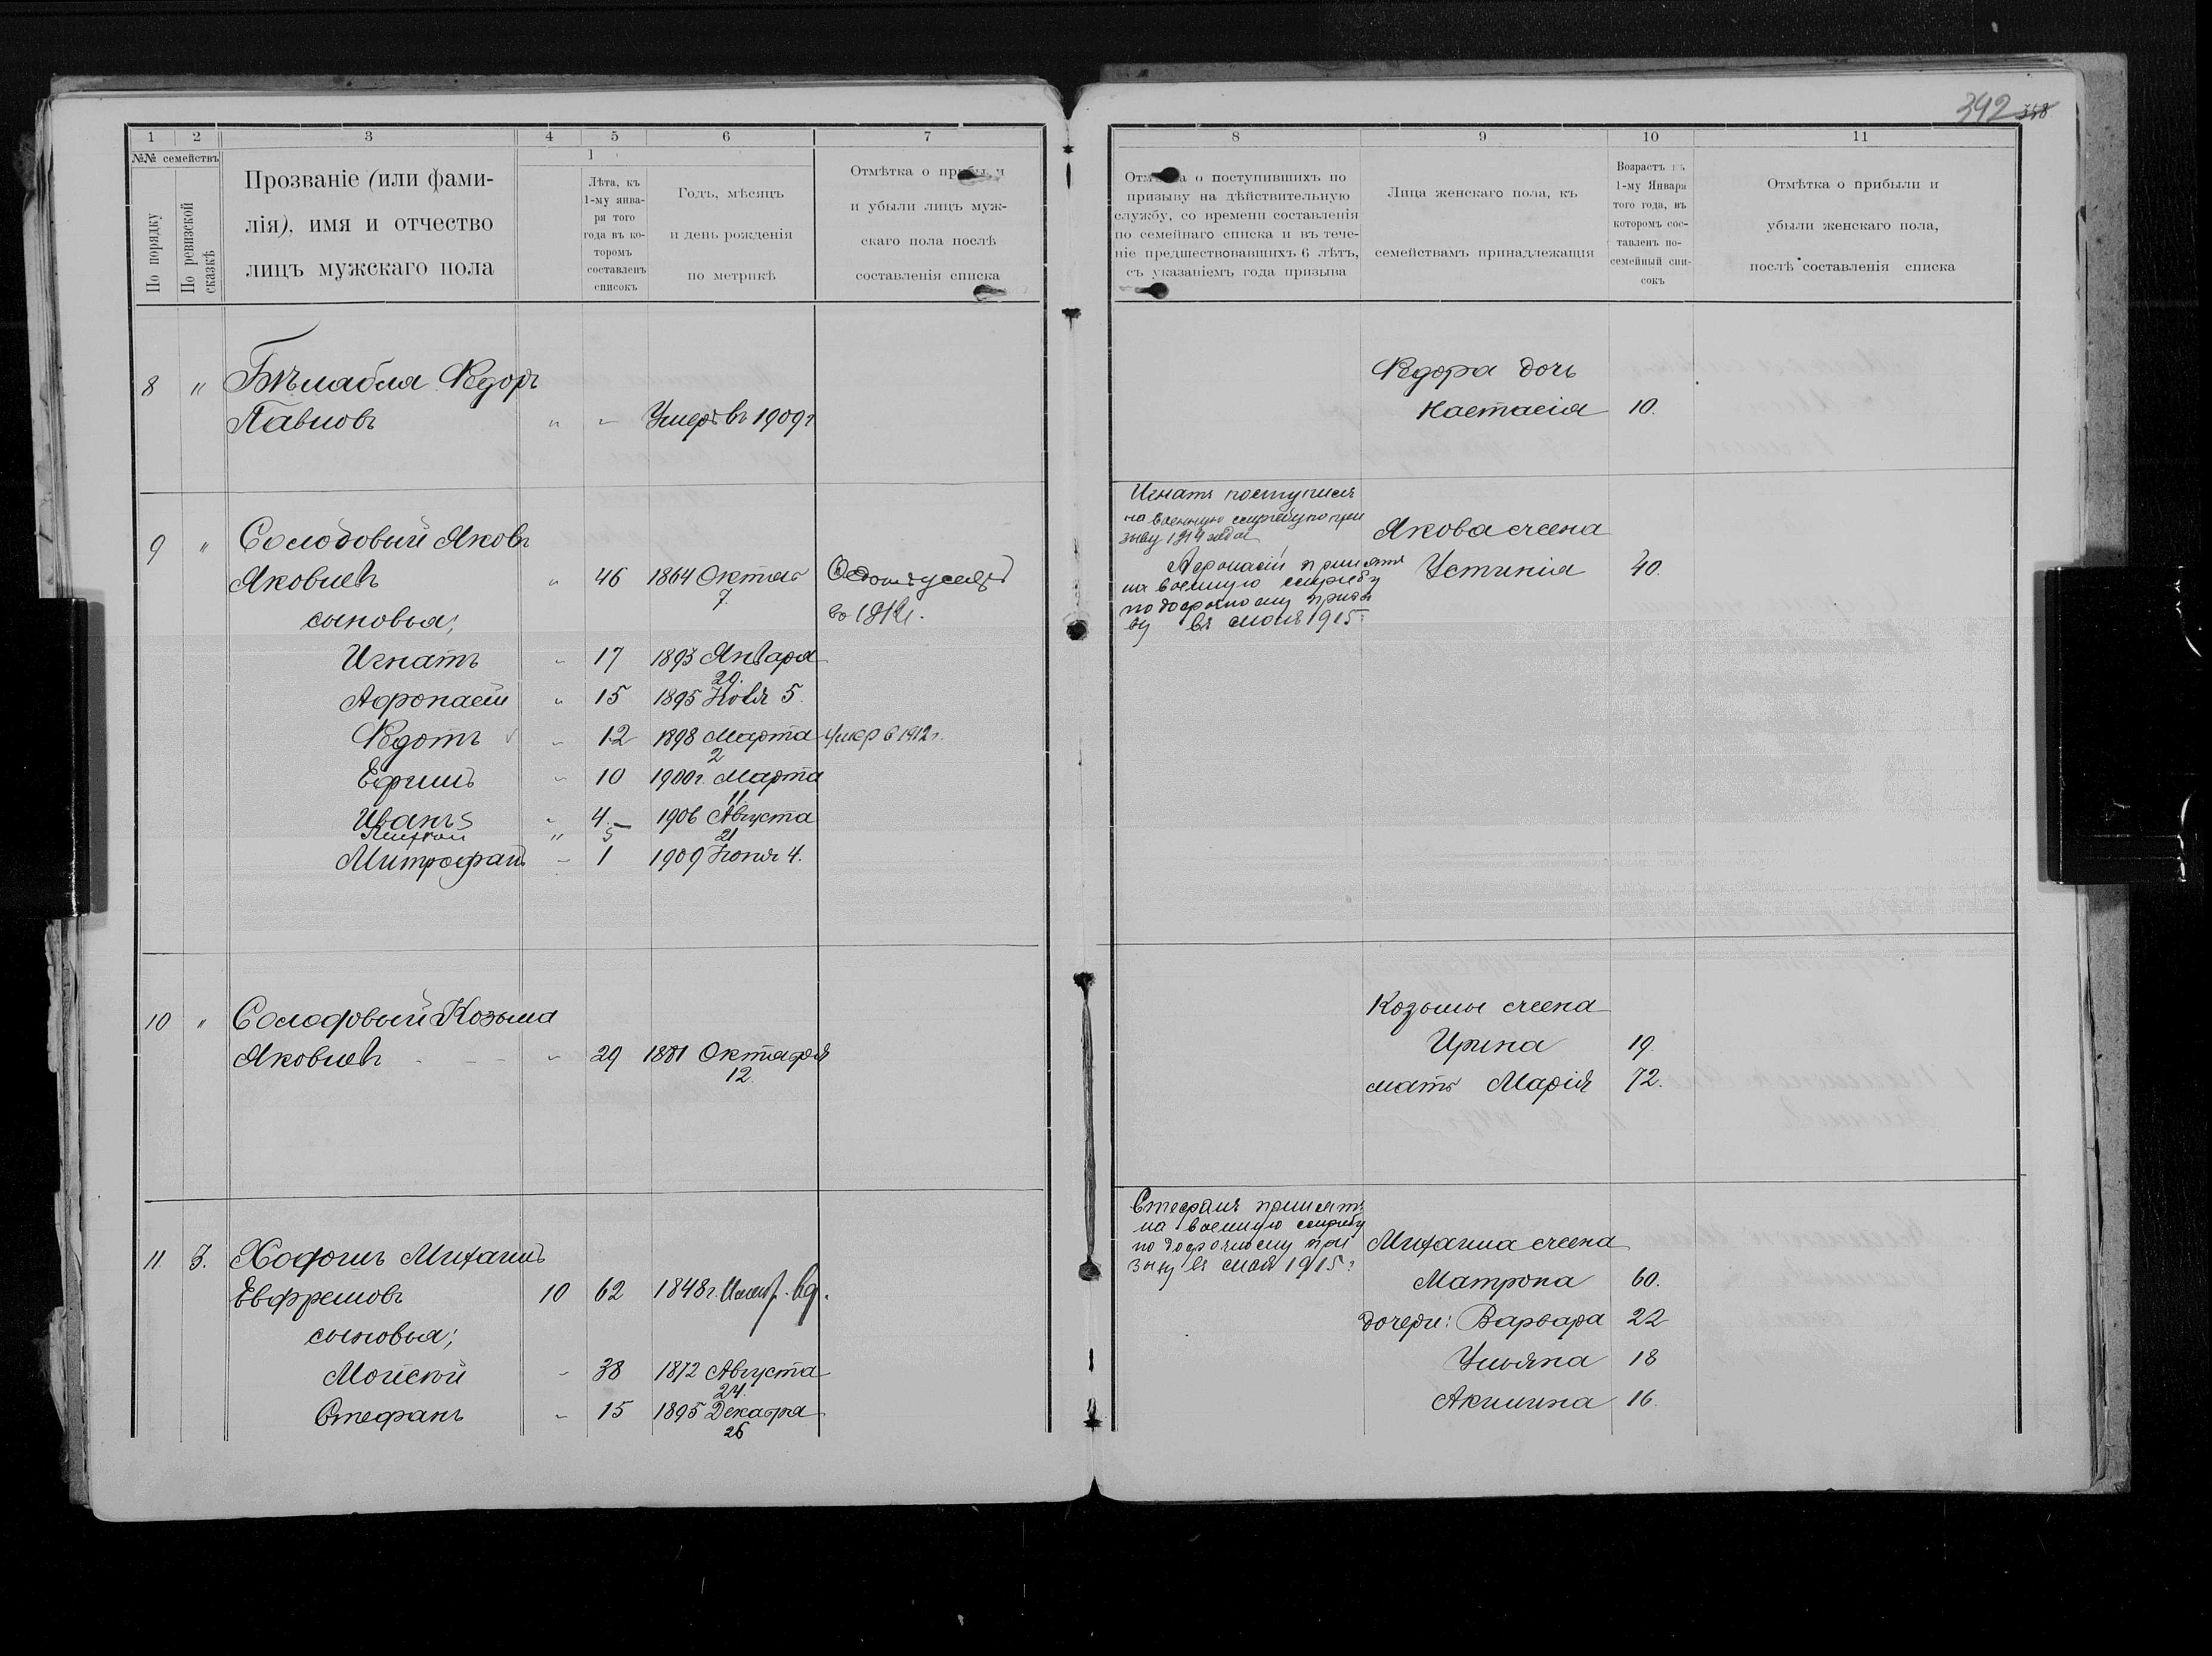 392 358
1 2 3 4 5 6 7
№№ семействъ
По порядку
По ревизской сказкѣ
Прозваніе (или фами-
лія), имя и отчество
лицъ мужскаго пола
Лѣта, къ
1-му янва-
ря того
года въ ко-
торомъ
составленъ
списокъ
Годъ, мѣсяцъ
и день рожденія
по метрикѣ
Отмѣтка о прибыли
и убыли лицъ муж-
скаго пола послѣ
составленія списка
8 " Федоръ
Павловъ " " Умеръ въ 1909 г
9 " Солодовый Яковъ
Яковлевъ " 46 1864 Октяб
7.
сыновья;
Игнатъ " 17 1893 Января
20.
Афонасій " 15 1895 5.
Федотъ " 12 1898 Марта умер в 1912 г.
2
Ефимъ " 10 1900 г. Марта
11.
Иванъ " 4 1906 Августа
21
" 5
Митрофанъ " 1 1909 Іюня 4.
10 " Солодовый Козьма
Яковлевъ " 29 1881 Октября
12.
11 3. Михаилъ
Евфремовъ 10 62 1848 г.
сыновья;
Мойсей " 38 1872 Августа
24.
Стефанъ " 15 1895 Декабря
26
8 9 10 11
Отмѣтка о поступившихъ по
призыву на дѣйствительную
службу, со времени составленія
по семейнаго списка и въ тече-
ніе предшествовавшихъ 6 лѣтъ,
съ указаніемъ года призыва
Лица женскаго пола, къ
семействамъ принадлежащія
Возрастъ къ
1-му Января
того года, въ
которомъ сос-
тавленъ по-
семейный спи-
сокъ
Отмѣтка о прибыли и
убыли женскаго пола,
послѣ составленія списка
Федора дочь
Настасія 10.
Игнатъ поступилъ
на военную службу по при
зыву 1914 года
Афонасій принятъ
на военную службу
по досрочному призы
ву въ маѣ 1915 г
Якова жена
Устинія 40.
Козьмы жена
Ирина 19.
мать Марія 72.
Стефанъ принятъ
на военную службу
по досрочному при
зыву въ маѣ 1915 г
Михаила жена
Матрона 60.
дочери: Варвара 22
Ульяна 18
Акилина 16.